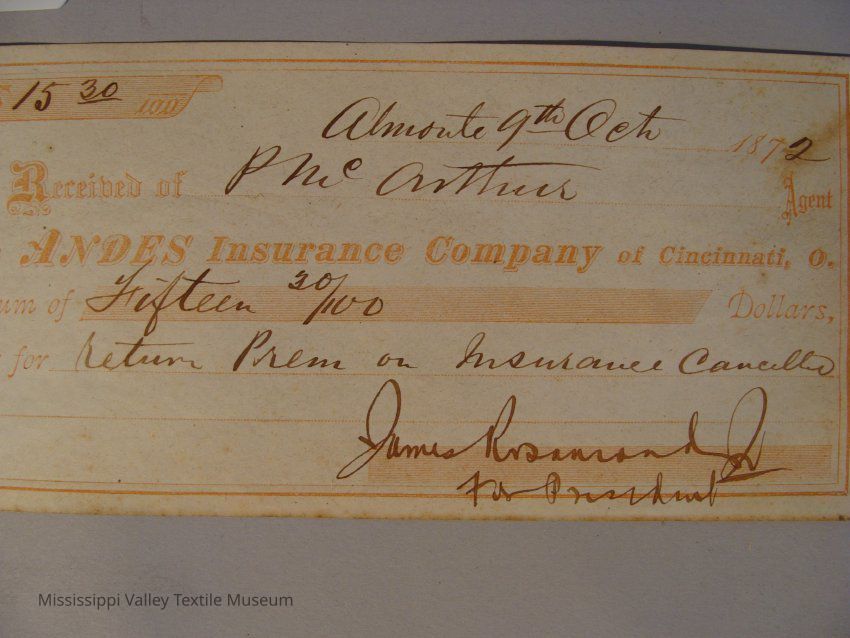 $ 15 30/100
Almonte 9th Oct 1872
Received of P McArthur Agent
ANDES Insurance Company of Cincinnati, O.
um of Fifteen 30/100 Dollars,
for return Prem on Insurance Cancelled
James Rosamond Jr
For President
Mississippi Valley Textile Museum